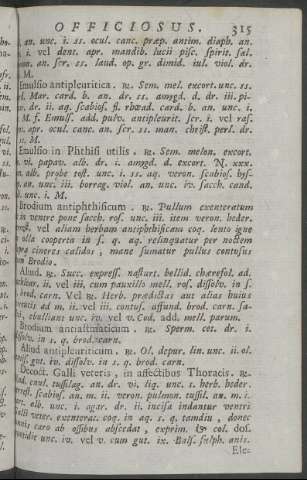 OFFICIOSUS. 315
an. unc. i. ss. ocul. canc. præp. antim. diaph. an.
i. vel dent. apr. mandib. lucii pisc. spirit. sal.
an. scr. ss. laud. op. gr. dimid. iul. viol. dr.
M.
Emulsio antipleuritica. ℞. Sem. mel. excort. unc. ss.
Mar. card. b. an. dr. ss. amygd. d. dr. iii. pi-
dr. ii. aq. scabios. fl. rhœad. card. b. an. unc. i.
M. f. Emuls. add. pulv. antipleurit. scr. i. vel ras.
apr. ocul. canc. an. scr. ss. man. christ. perl. dr.
M.
Emulsio in Phthisi utilis. ℞. Sem. melon. excort.
vi. papav. alb. dr. i. amygd. d. excort. N. xxx.
alb. probe tost. unc. i. ss. aq. veron. scabios. hys-
an. unc. iii. borrag. viol. an. unc. iv. sacch. cand.
unc. i. M.
Brodium antiphthisicum. ℞. Pullum exenteratum
in ventre pone sacch. ros. unc. iii. item veron. heder.
vel aliam herbam antiphthisicam coq. lento igne
olla cooperta in s. q. aq. relinquatur per noctem
cineres calidos, mane sumatur pullus contusus
Brodio.
Aliud. ℞. Succ. express. nasturt. bellid. chærefol. ad.
ii. vel iii, cum pauxillo mell. ros. dissolv. in s.
brod. carn. Vel ℞. Herb. prædictas aut alias huius
ad m. ii. vel iii. contus. affund. brod. carn. fa-
ebulliant unc. iv. vel v. Col. add. mell. parum.
Brodium antiasthmaticum. ℞. Sperm. cet. dr. i.
in s. q. brod. carn.
Aliud antipleuriticum. ℞. Ol. depur. lin. unc. ii. ol.
gut. iv. dissolv. in s. q. brod. carn.
Decoct. Galli veteris, in affectibus Thoracis. ℞.
enul. tussilag. an. dr. vi. liq. unc. s. herb. heder.
scabios. an. m. ii. veron. pulmon. tussil. an. m. i.
alb. unc. i. agar. dr. ii. incisa indantur ventri
veter. exenterat. coq. in aq. s. q. tamdiu, donec
caro ab ossibus abscedat, exprim. & col. dos.
unc. iv. vel v. cum gut. ix. Bals. sulph. anis.
Elec-